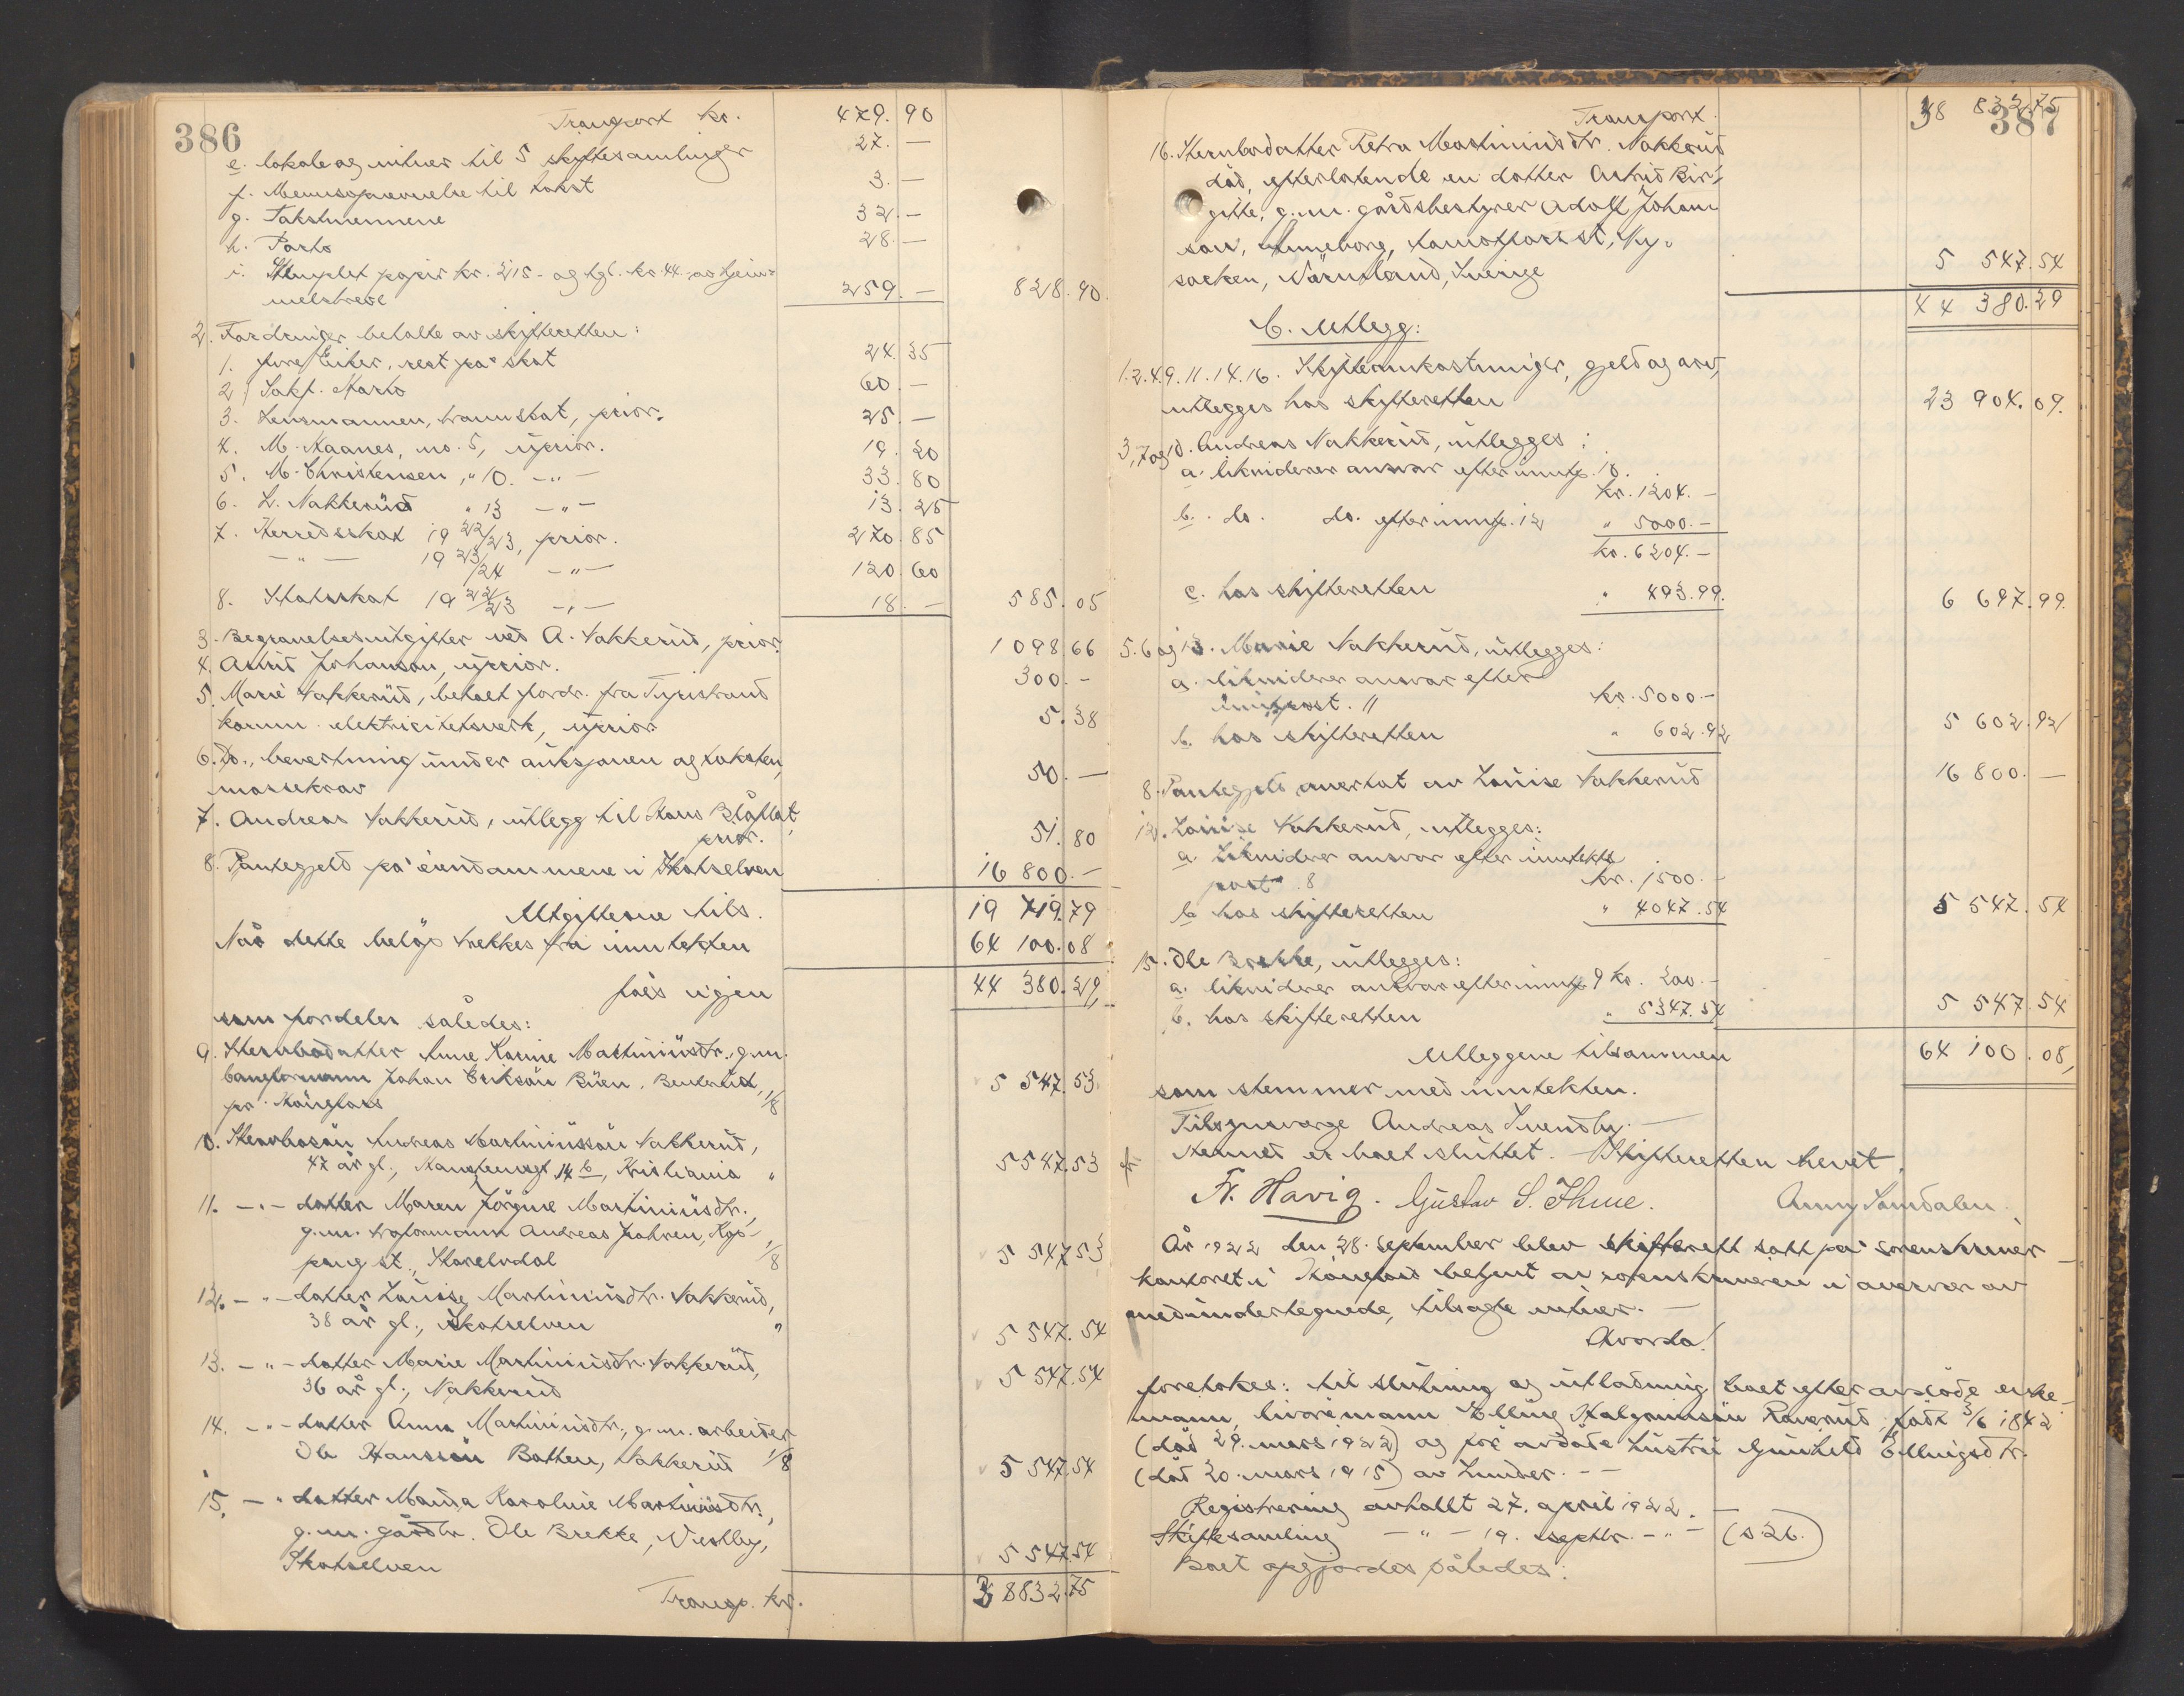 386
Transport kr. 479.90
e. lokale og vitner til 5 skiftesamlinger 27.—
f. Mennsopnevnelse til takst 3.—
g. Takstmennene 32.—
h. Porto 28.—
i. Stemplet papir kr. 215.- og tgl. kr. 44.- av hjem=
melsbreve 259.— 828.90.
2. Fordringer betalte av skifteretten:
1. Øvre Eiker, rest på skat 24.35
2. Sakf. 60.—
3. Lensmannen, prior. 25.—
4. M. Kaanes, no. 5, uprior. 19.20
5. M. Christensen, " 10. — " — 33.80
6. L. Nakkerud " 13 — " — 13.25
7. Herredsskat 1922/23, prior. 270.85
— " — 1923/24 — " — 120.60
8. Statsskat 1922/23 — " — 18.— 585.05
3. Begravelsesutgifter ved A. Nakkerud, prior. 1098.66
4. Astrid Johanson, uprior. 300.—
5. Marie Nakkerud, betalt fordr. fra Tyristrand
komm. elektricitetsverk, uprior. 5.38
6. Do., bevertning under auksjonen og taksten,
massekrav 50.—
7. Andreas Nakkerud, utlegg til Hans
prior. 51.80
8. Pantegjeld på eiendommene i Skotselven 16 800.—
Utgifterne tils. 19 719.79
Når dette beløp trekkes fra inntekten 64 100.08
fåes igjen 44 380.29,
som fordeles således:
9. Stervbodatter Anne Karine Martiniusdtr., g.m.
banformann Johan Erikson Buen, Benterud,
pr. Hønefoss 1/8 5 547.53
10. Stervbosøn Andreas Martiniussøn Nakkerud,
47 år gl., 14 b, Kristiania " 5547.53
11. — " — datter Maren Jørgine Martiniusdtr.,
g.m. Andreas Jahren, Kop-
pang st., Storelvdal 1/8 5 547.53
12. — " — datter Louise Martiniusdtr. Nakkerud,
38 år gl., Skotselven " 5 547.54
13. — " — datter Marie Martiniusdtr. Nakkerud,
36 år gl., Nakkerud 5 547.54
14. — " — datter Anna Martiniusdtr., g.m. arbeider
Ole Hanssøn Botten, Nakkerud 1/8 5 547.54
15. — " datter Karoline Martiniusdtr.,
g.m. gårdbr. Ole Brekke, Vestby,
Skotselven 5 547.54
Transp. kr. 38832.75
387
Transport 38 832.75
16. Stervbodatter Petra Martiniusdtr. Nakkerud
død, efterlatende en datter Astrid Bir-
gitte, g.m. gårdsbestyrer Adolf Johan
son, Ny-
socken, Värmland, Sverige 5 547.54
44 380.29
C. Utlegg:
1.2.4.9.11.14.16. Skifteomkostninger, gjeld og arv,
utlegges hos skifteretten 23 904.09.
3, 7 og 10. Andreas Nakkerud, utlegges:
a. likviderer ansvar efter inntp. 10. kr. 1204.—
b. do. do. efter inntp. 12 " 5000.—
kr. 6204.—
c. hos skifteretten " 493.99. 6 697.99.
5. 6 og 13. Marie Nakkerud, utlegges:
a. likviderer ansvar efter
inntpost. 11 kr. 5000.—
b. hos skifteretten " 602.92 5 602.92
8. Pantegjeld overtat av Louise Nakkerud 16 800.—
12. Louise Nakkerud, utlegges:
a. likviderer ansvar efter inntekts
post 8 kr. 1500.—
b. hos skifteretten " 4047.54 5 547.54
15. Ole Brekke, utlegges:
a. likviderer ansvar efter inntp. 9 kr. 200.—
b. hos skifteretten " 5347.54 5 547.54
Utleggene tilsammen 64 100.08,
som stemmer med inntekten.
Tilsynsverge Andreas Svendby.—
Hermed er boet sluttet. Skifteretten hevet.
Fr. Havig. Gustav S. Ihme. Anny Samdalen.
År 1922 den 28. september blev skifterett satt på sorenskriver-
kontoret i Hønefoss betjent av sorenskriveren i overvær av
medundertegnede, tilsagte vitner.—
Hvorda!
foretokes: til slutning og utlodning boet efter avdøde enke-
mann, livøremann Elling Halgrimsøn Raverud født 3/6 1842
(død 29. mars 1922) og før avdøde hustru Gunhild Ellingsdtr.
(død 20. mars 1915) av Lunder. —
Registrering avholdt 27. april 1922.
Skiftesamling — " — 19. septbr. — " — (s 26.)
Boet opgjordes således: